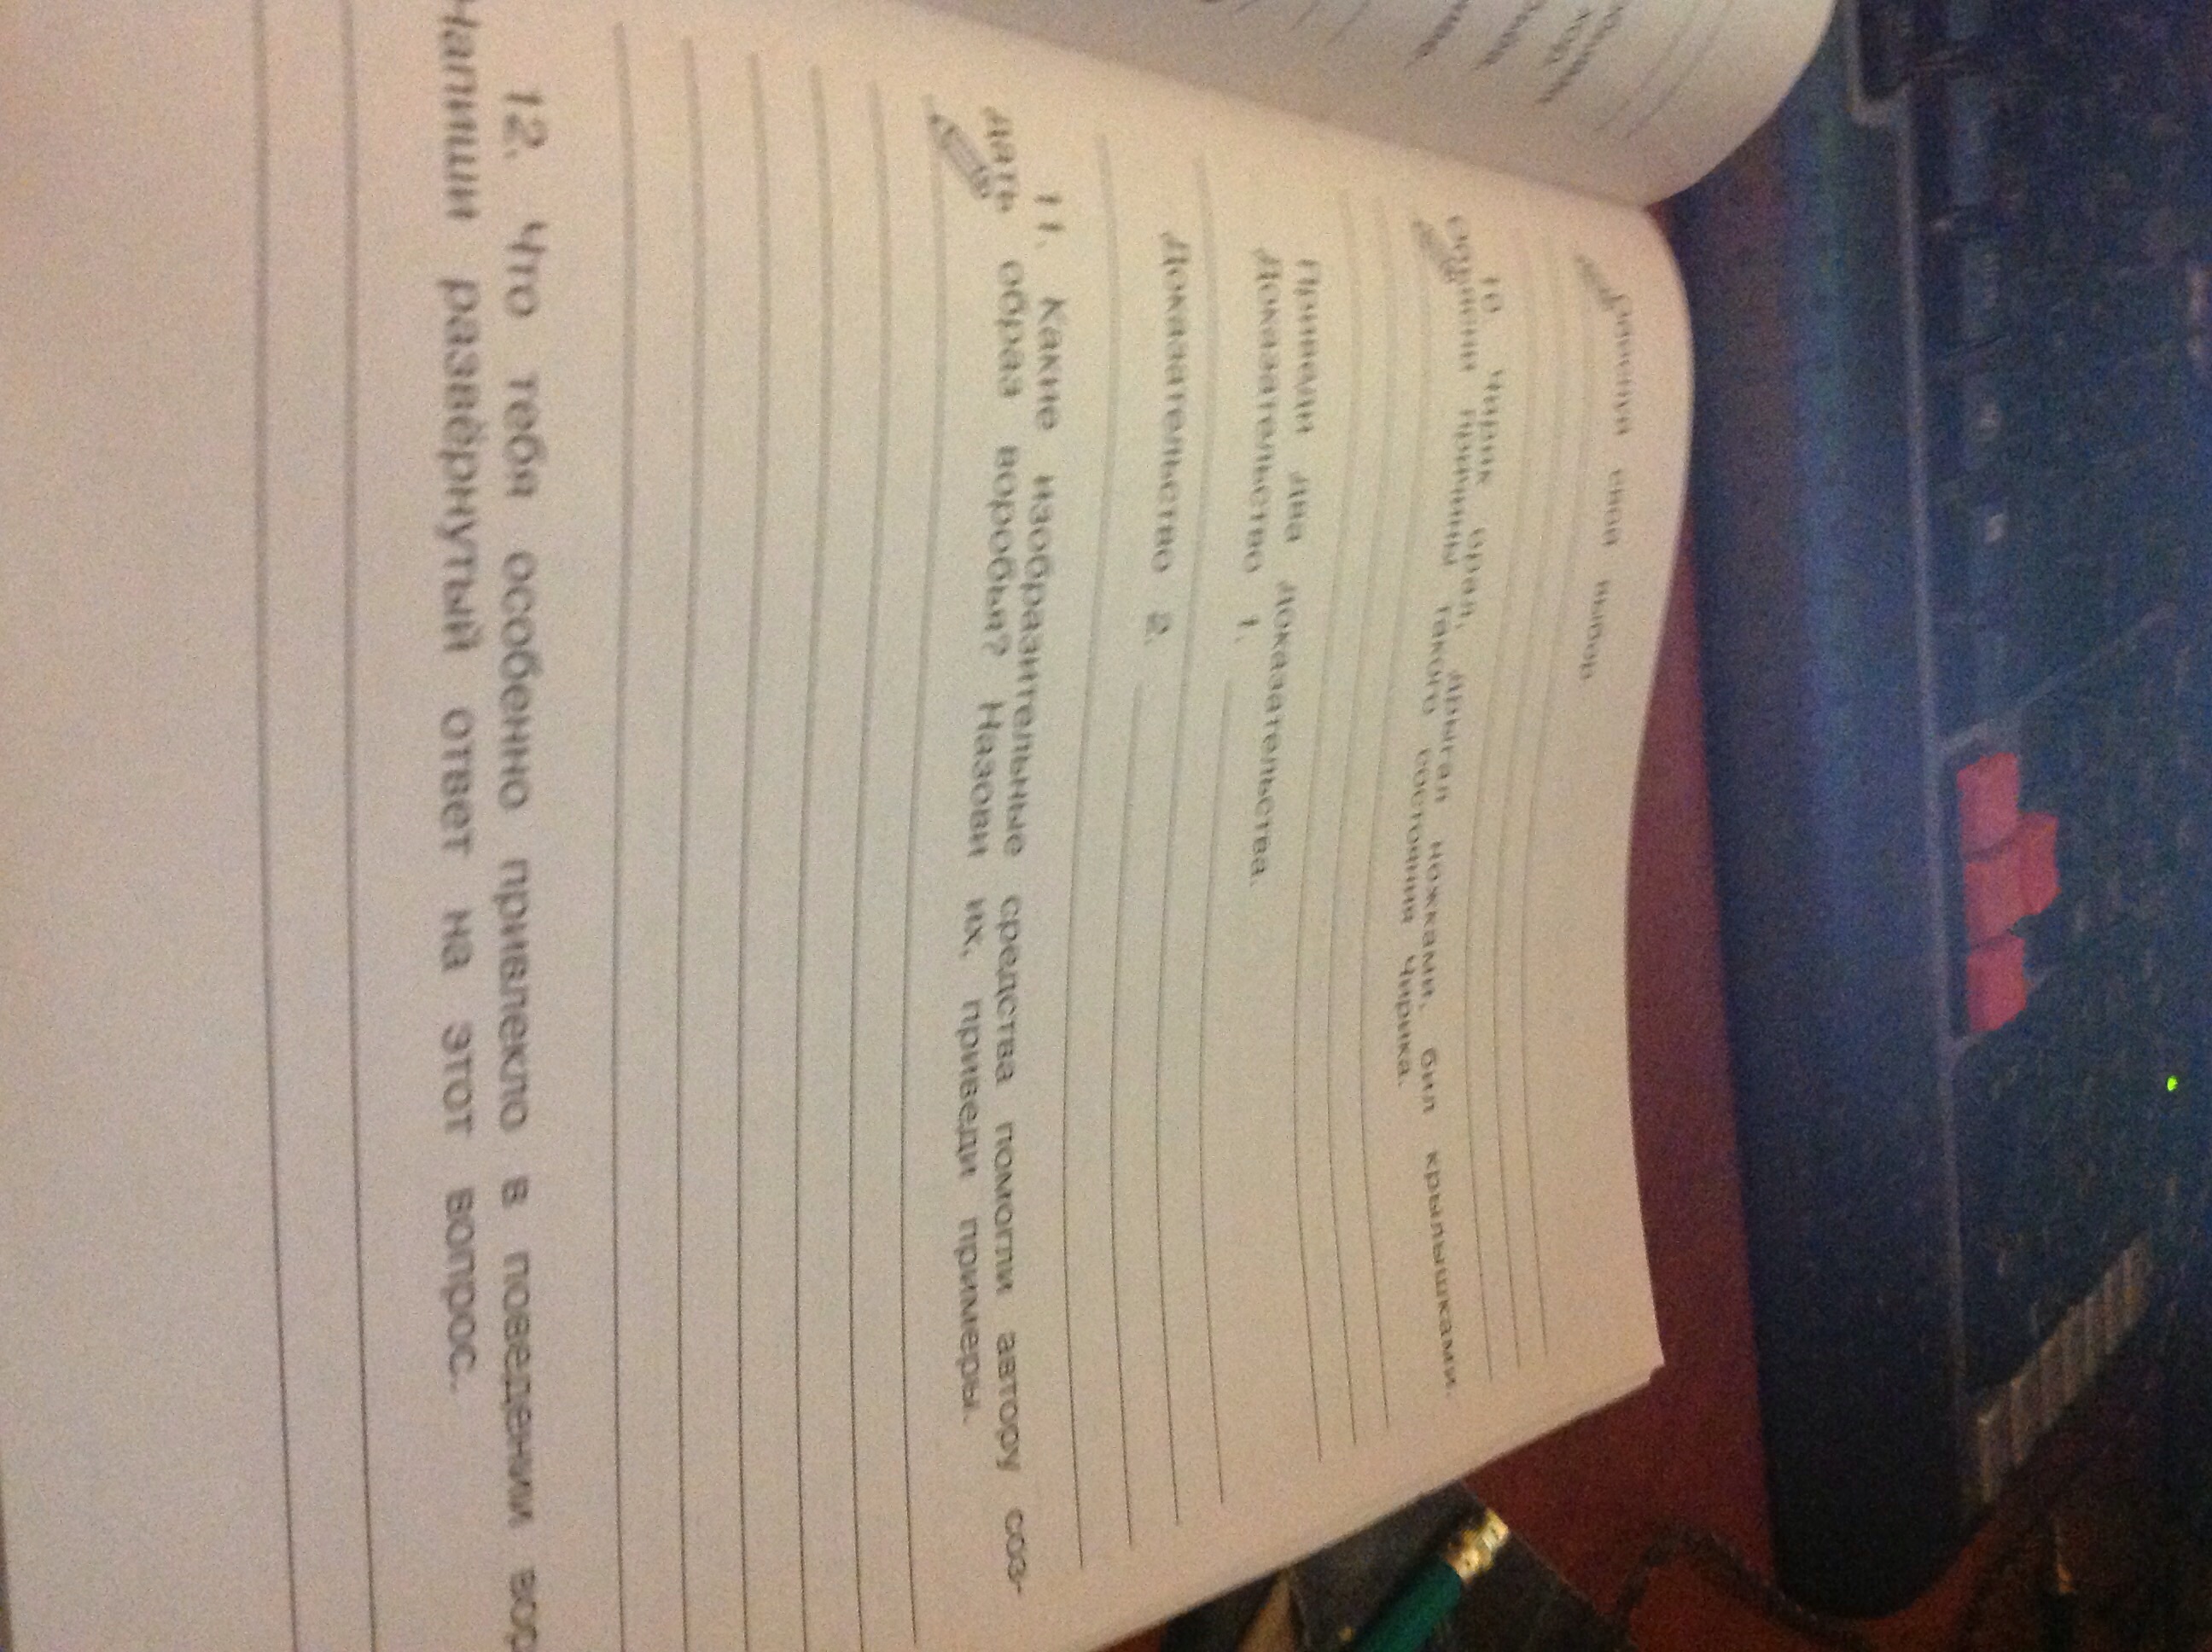 свой выбор.
10. Чирик орал, дрыгал ножками, бил крылышками.
причины такого состояния Чирика.
Приведи два доказательства.
Доказательство 1.
Доказательство 2.
11. Какие изобразительные средства помогли автору соз-
дать образ воробья? Назови их, приведи примеры.
12. Что тебя особенно привлекло в поведении вор
Напиши развёрнутый ответ на этот вопрос.